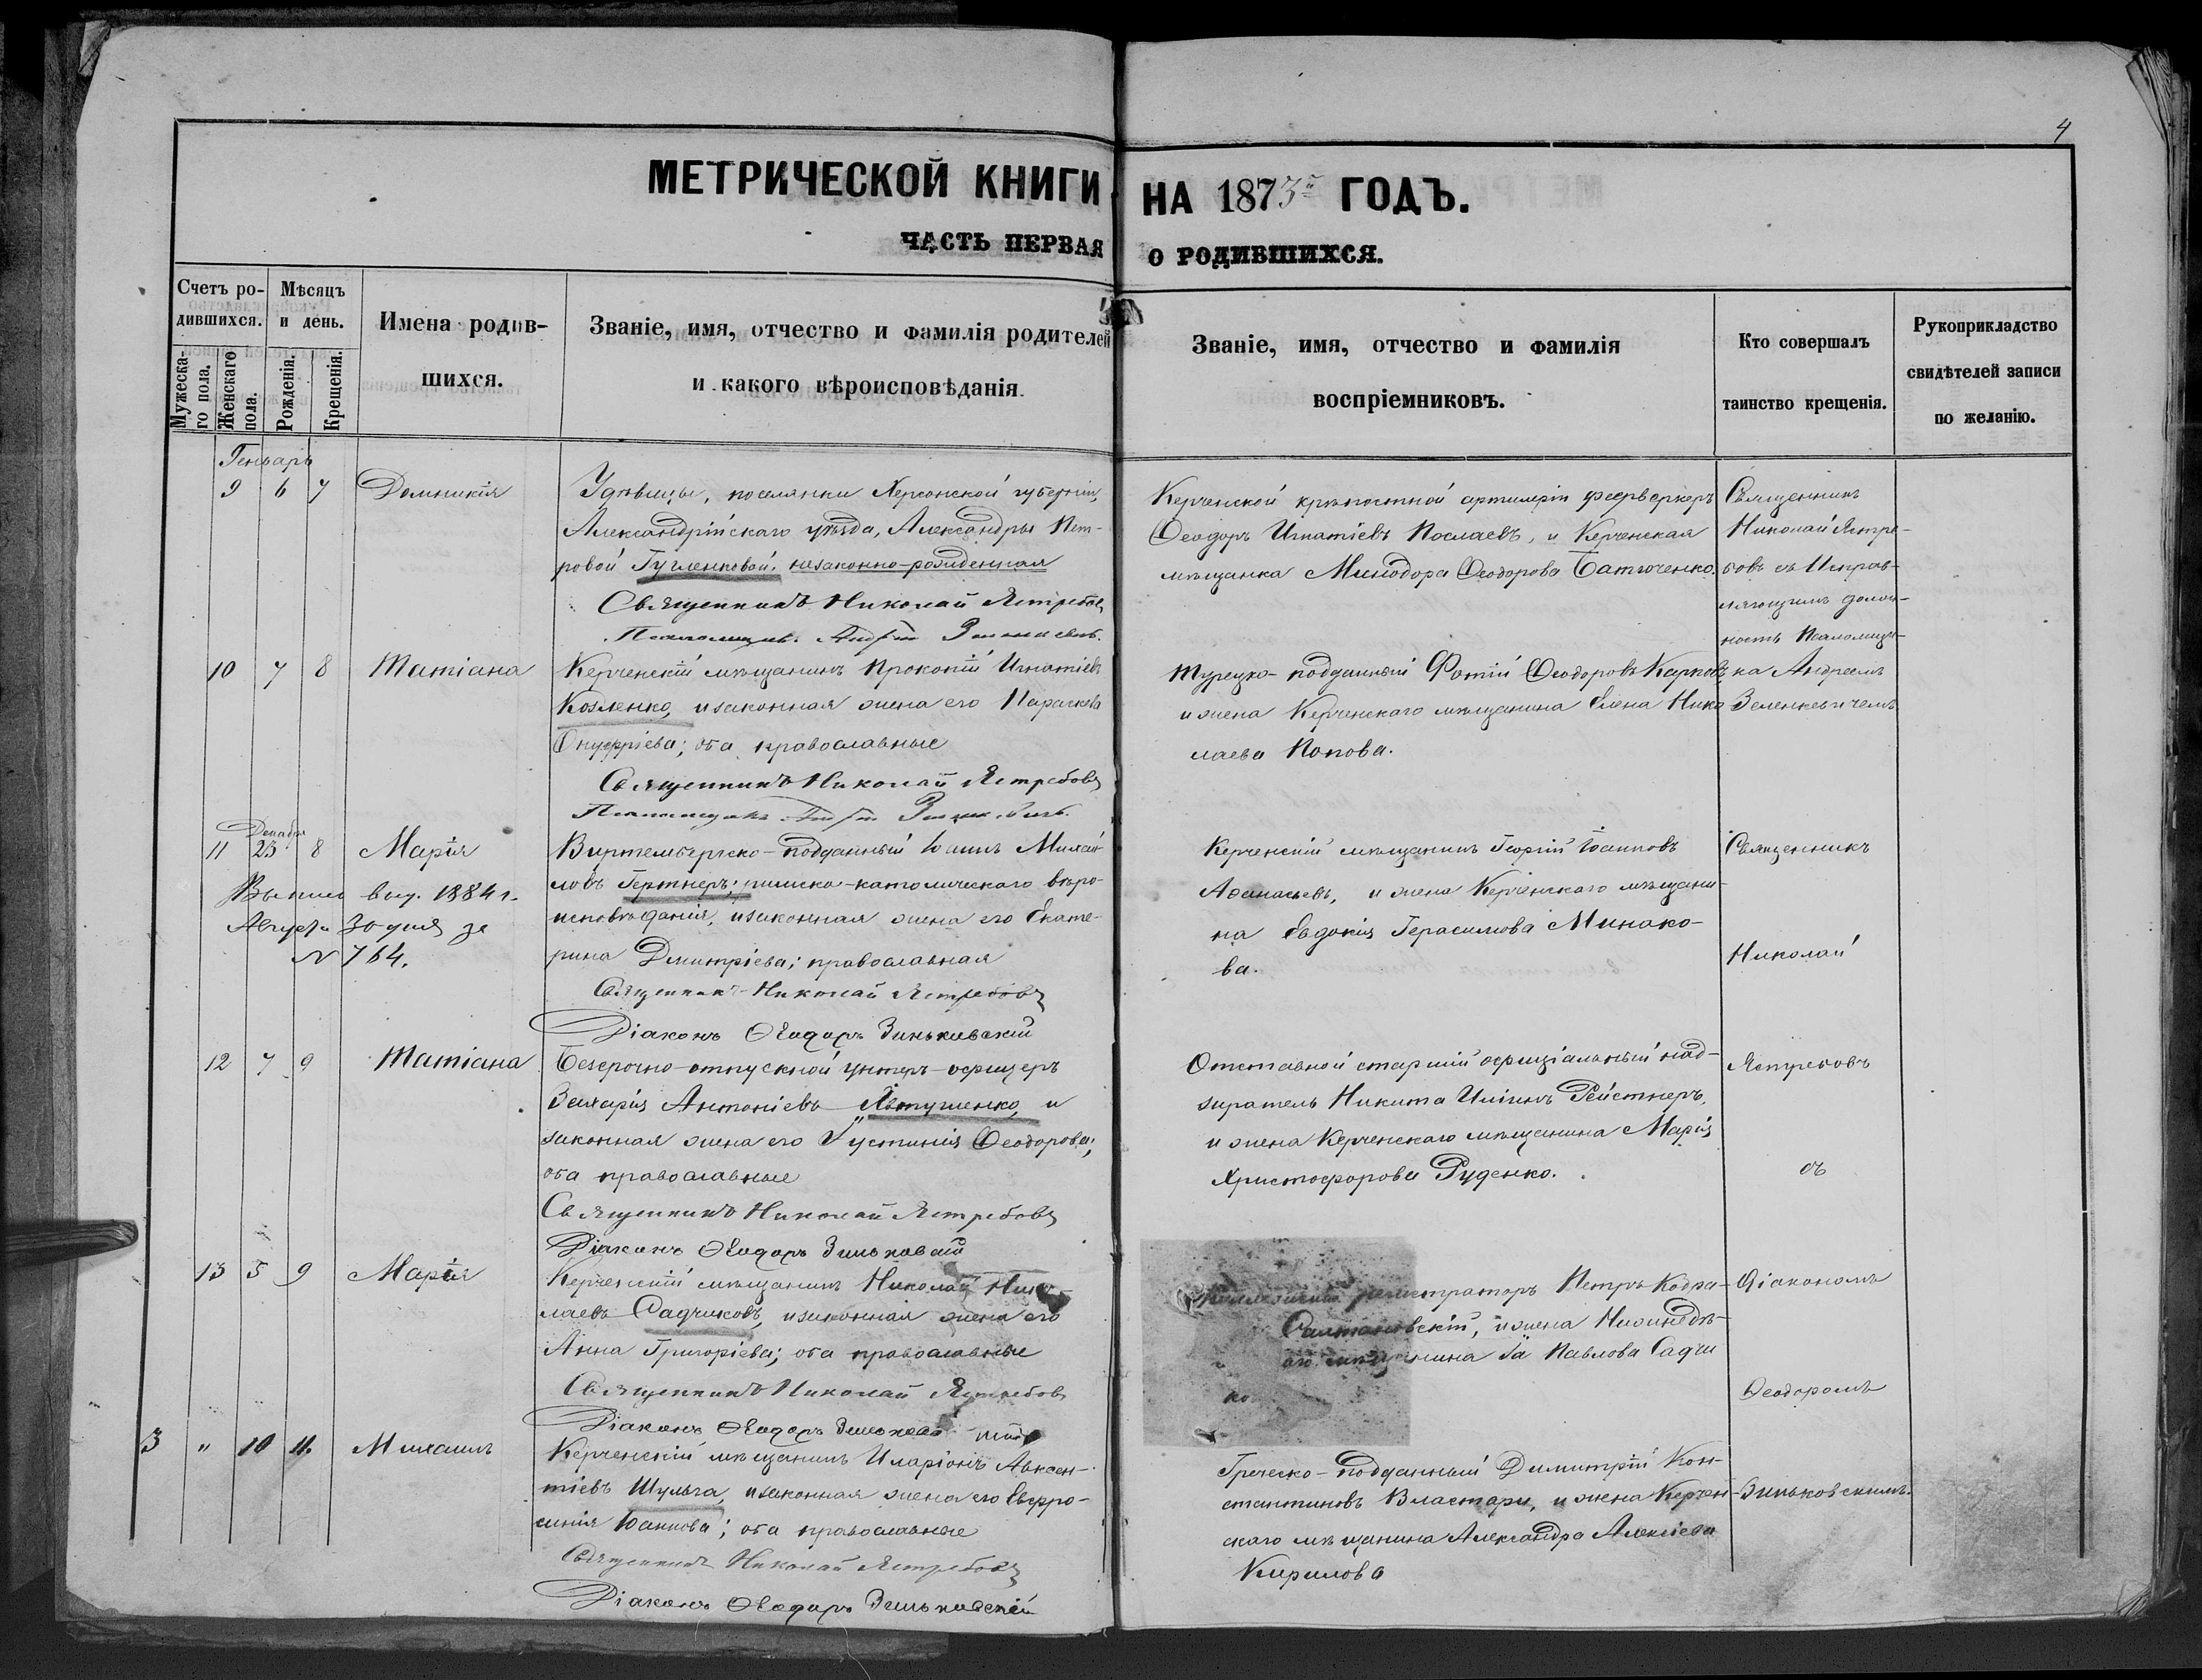 4
МЕТРИЧЕСКОЙ КНИГИ НА 1873й ГОДЪ.
ЧАСТЬ ПЕРВАЯ О РОДИВШИХСЯ.
Счетъ ро-
дившихся.
Мужеска-
го пола.
Женскаго
пола.
Мѣсяцъ
и день.
Рожденія.
Крещенія.
Имена родив-
шихся.
Званіе, имя, отчество и фамилія родителей
и какого вѣроисповѣданія.
Званіе, имя, отчество и фамилія
воспріемниковъ.
Кто совершалъ
таинство крещенія.
Рукоприкладство
свидѣтелей записи
по желанію.
Генварь
9 6 7 Домникія
Удѣвицы, поселянки Херсонской губерніи,
Александрійскаго уѣзда, Александры Пет-
ровой Гугленковой, незаконно-рожденная
Священникъ Николай Ястребовъ
Псаломщикъ
Керченской крѣпостной артилеріи фееръверкеръ
Ѳеодоръ Игнатіевъ Послаевъ, и Керченская
мѣщанка Минодора Ѳеодорова Батюченко.
Священникъ
Николай Ястре-
бовъ съ Исправ-
ляющимъ долж-
ность Псаломщи-
ка Андреемъ
Зеленкевичемъ
10 7 8 Татіана
Керченскій мѣщанинъ Прокопій Игнатіевъ
Козленко, и законная жена его Параскева
Онуфріева; оба православные
Священникъ Николай Ястребовъ
Псаломщикъ
Турецко-подданный Фотій Ѳеодоровъ Карповъ,
и жена Керченскаго мѣщанина Елена Нико-
лаева Попова.
Декабрь
11 23 8 Марія
Выпись выд. 1884 г.
Августа 30 дня за
N 764.
Виртембергско-подданный Іоаннъ Михай-
ловъ Гертнеръ; римско-католическаго вѣро-
исповѣданія, и законная жена его Екате-
рина Дмитріева; православная
Священникъ Николай Ястребовъ
Діаконъ Ѳеодоръ Зиньковскій
Керченскій мѣщанинъ Георгій Іоанновъ
Аѳанасьевъ, и жена Керченскаго мѣщани-
на Евдокія Герасимова Минако-
ва.
Священникъ
Николай
12 7 9 Татіана
Безсрочно-отпускной унтеръ-офицеръ
Захарія Антоніевъ Явтушенко, и
законная жена его Іустинія Ѳеодорова;
оба православные
Священникъ Николай Ястребовъ
Діаконъ Ѳеодоръ Зиньковскій
Отставной старшій офиціальный над-
зиратель Никита Иліинъ Рейстнеръ,
и жена Керченскаго мѣщанина Марія
Христофорова Руденко.
Ястребовъ
съ
13 5 9 Марія
Керченскій мѣщанинъ Николай Нико-
лаевъ Садчиковъ, и законная жена его
Анна Григоріева; оба православные
Священникъ Николай Ястребовъ
Діаконъ Ѳеодоръ
регистраторъ Петръ Кодра-
и жена
мѣщанина Павлова Садчи
ко
Діакономъ
Ѳеодоромъ
3 " 10 11. Михаилъ
Керченскій мѣщанинъ Иларіонъ Авксен-
тіевъ Шульга, и законная жена его Евфро-
синія Іоаннова; оба православные
Священникъ Николай Ястребовъ
Діаконъ Ѳеодоръ Зиньковскій
Греческо-подданный Димитрій Кон-
стантиновъ Властари, и жена Керчен-
скаго мѣщанина Александра Алексіева
Кирилова
Зиньковскимъ.